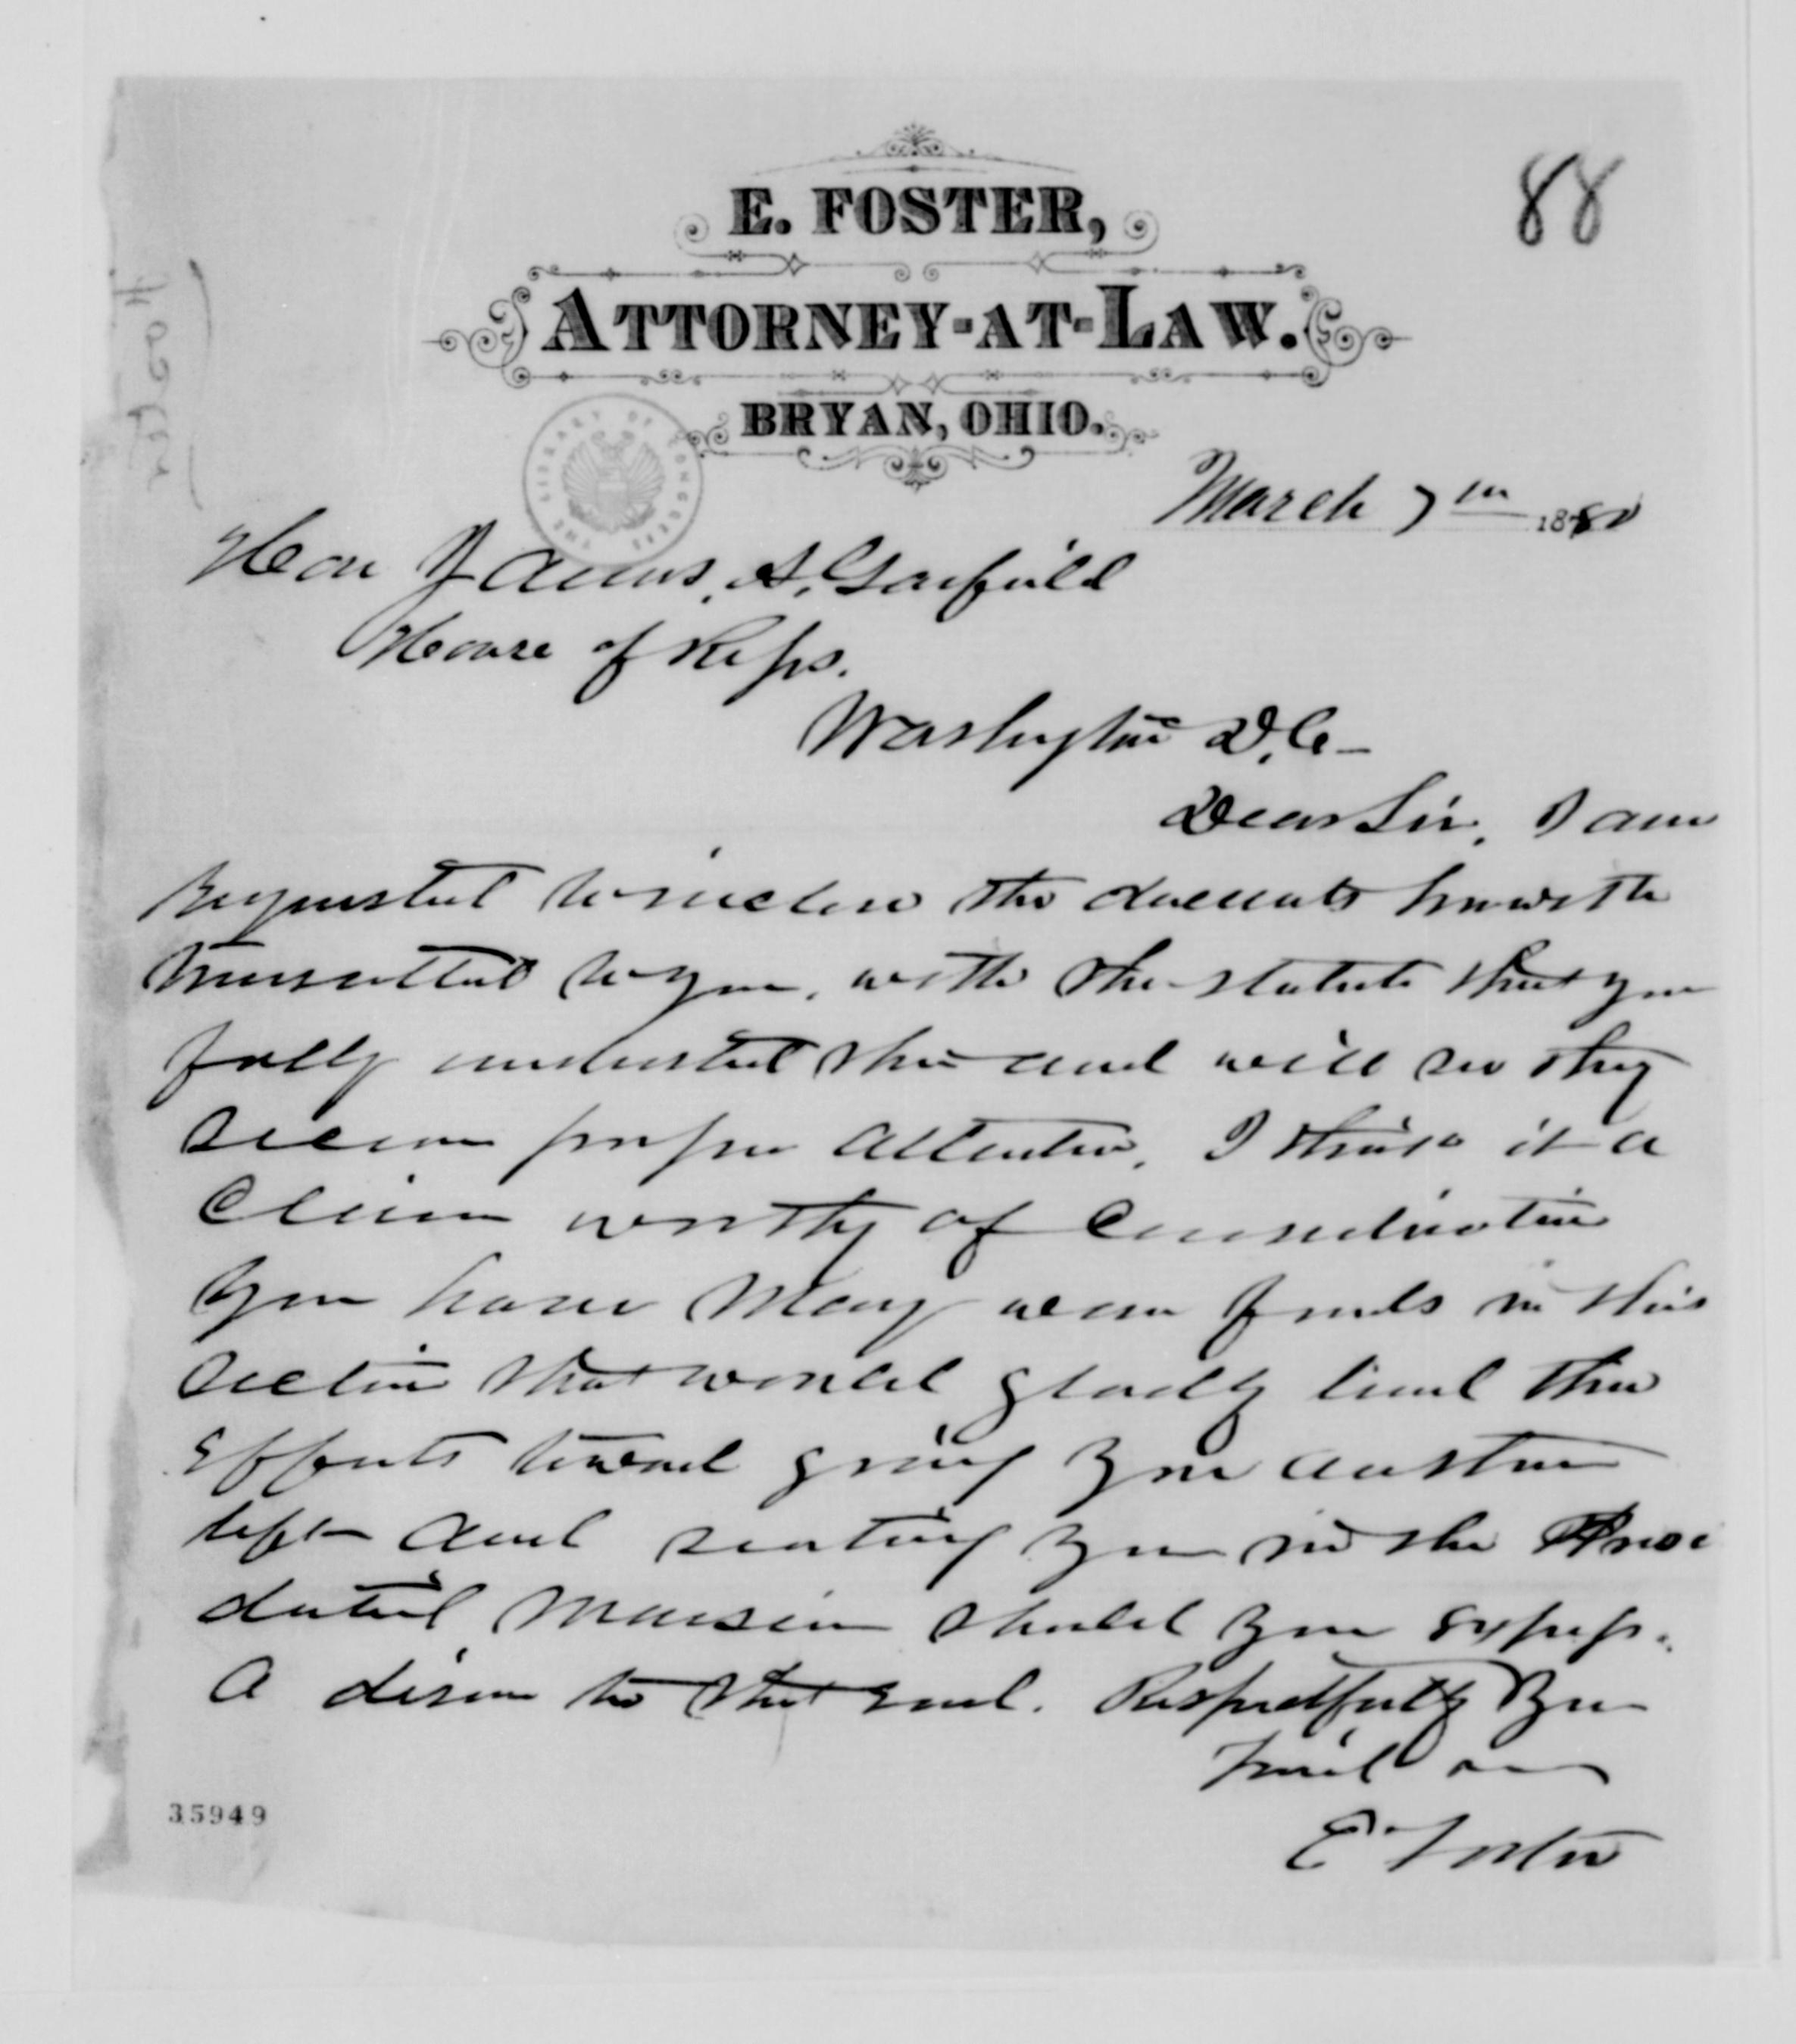 88
E. FOSTER,
ATTORNEY-AT-LAW.
BRYAN, OHIO.
THE LIBRARY OF CONGRESS
Foster
March 7th 1880
Hon James. A. Garfield
House of Reps.
Washington D.C-
Dear Sir, I am
Requested to inclose the documents herewith
transmitted to you, with the statute that you
fully understand the and will see they
receive proper attention, I think it a
Claim worthy of Consideration
You have many warm friends in this
section that would gladly lend their
efforts toward giving you
left and seating you in the Presi
dential Mansion should you express
A desire to that end. Respectfully Your
Friend
E Foster
35949